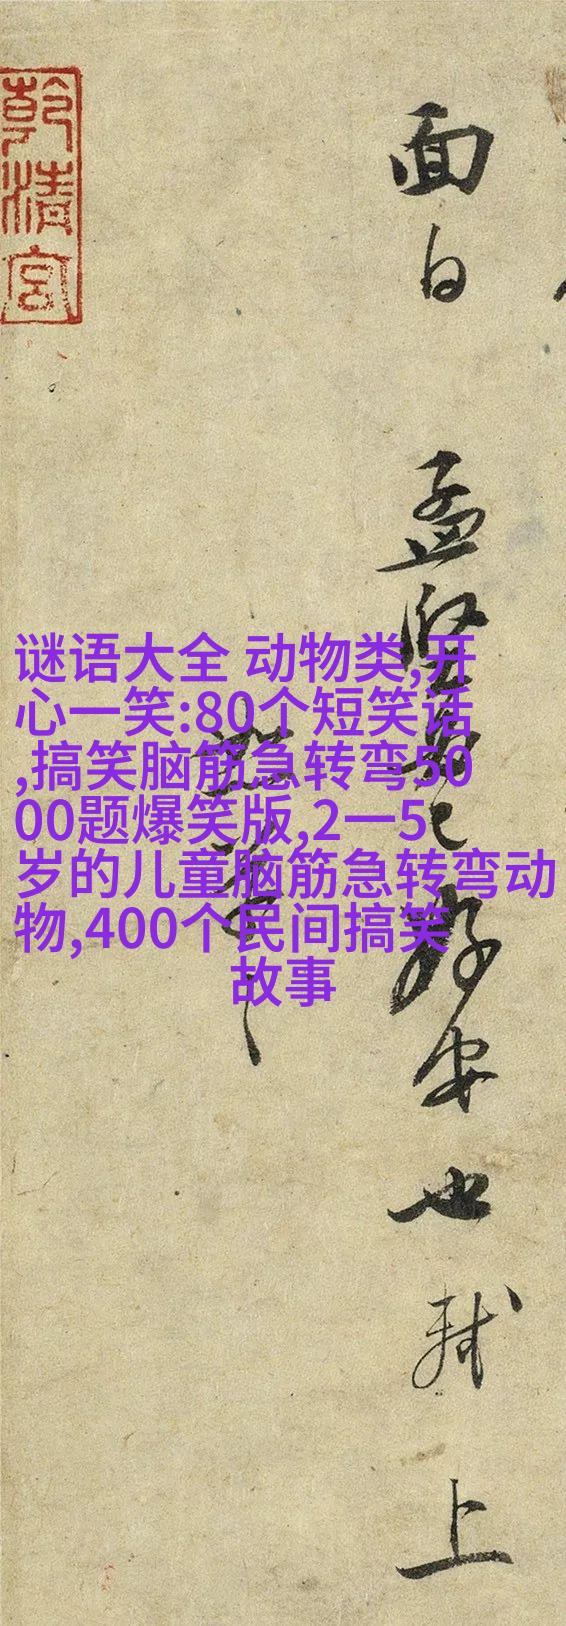 面白 孟堅 已 存安也 軾 上
乾清宮
谜语大全 动物类,开
心一笑:80个短笑话
,搞笑脑筋急转弯50
00题爆笑版,2一5
岁的儿童脑筋急转弯动
物,400个民间搞笑
故事